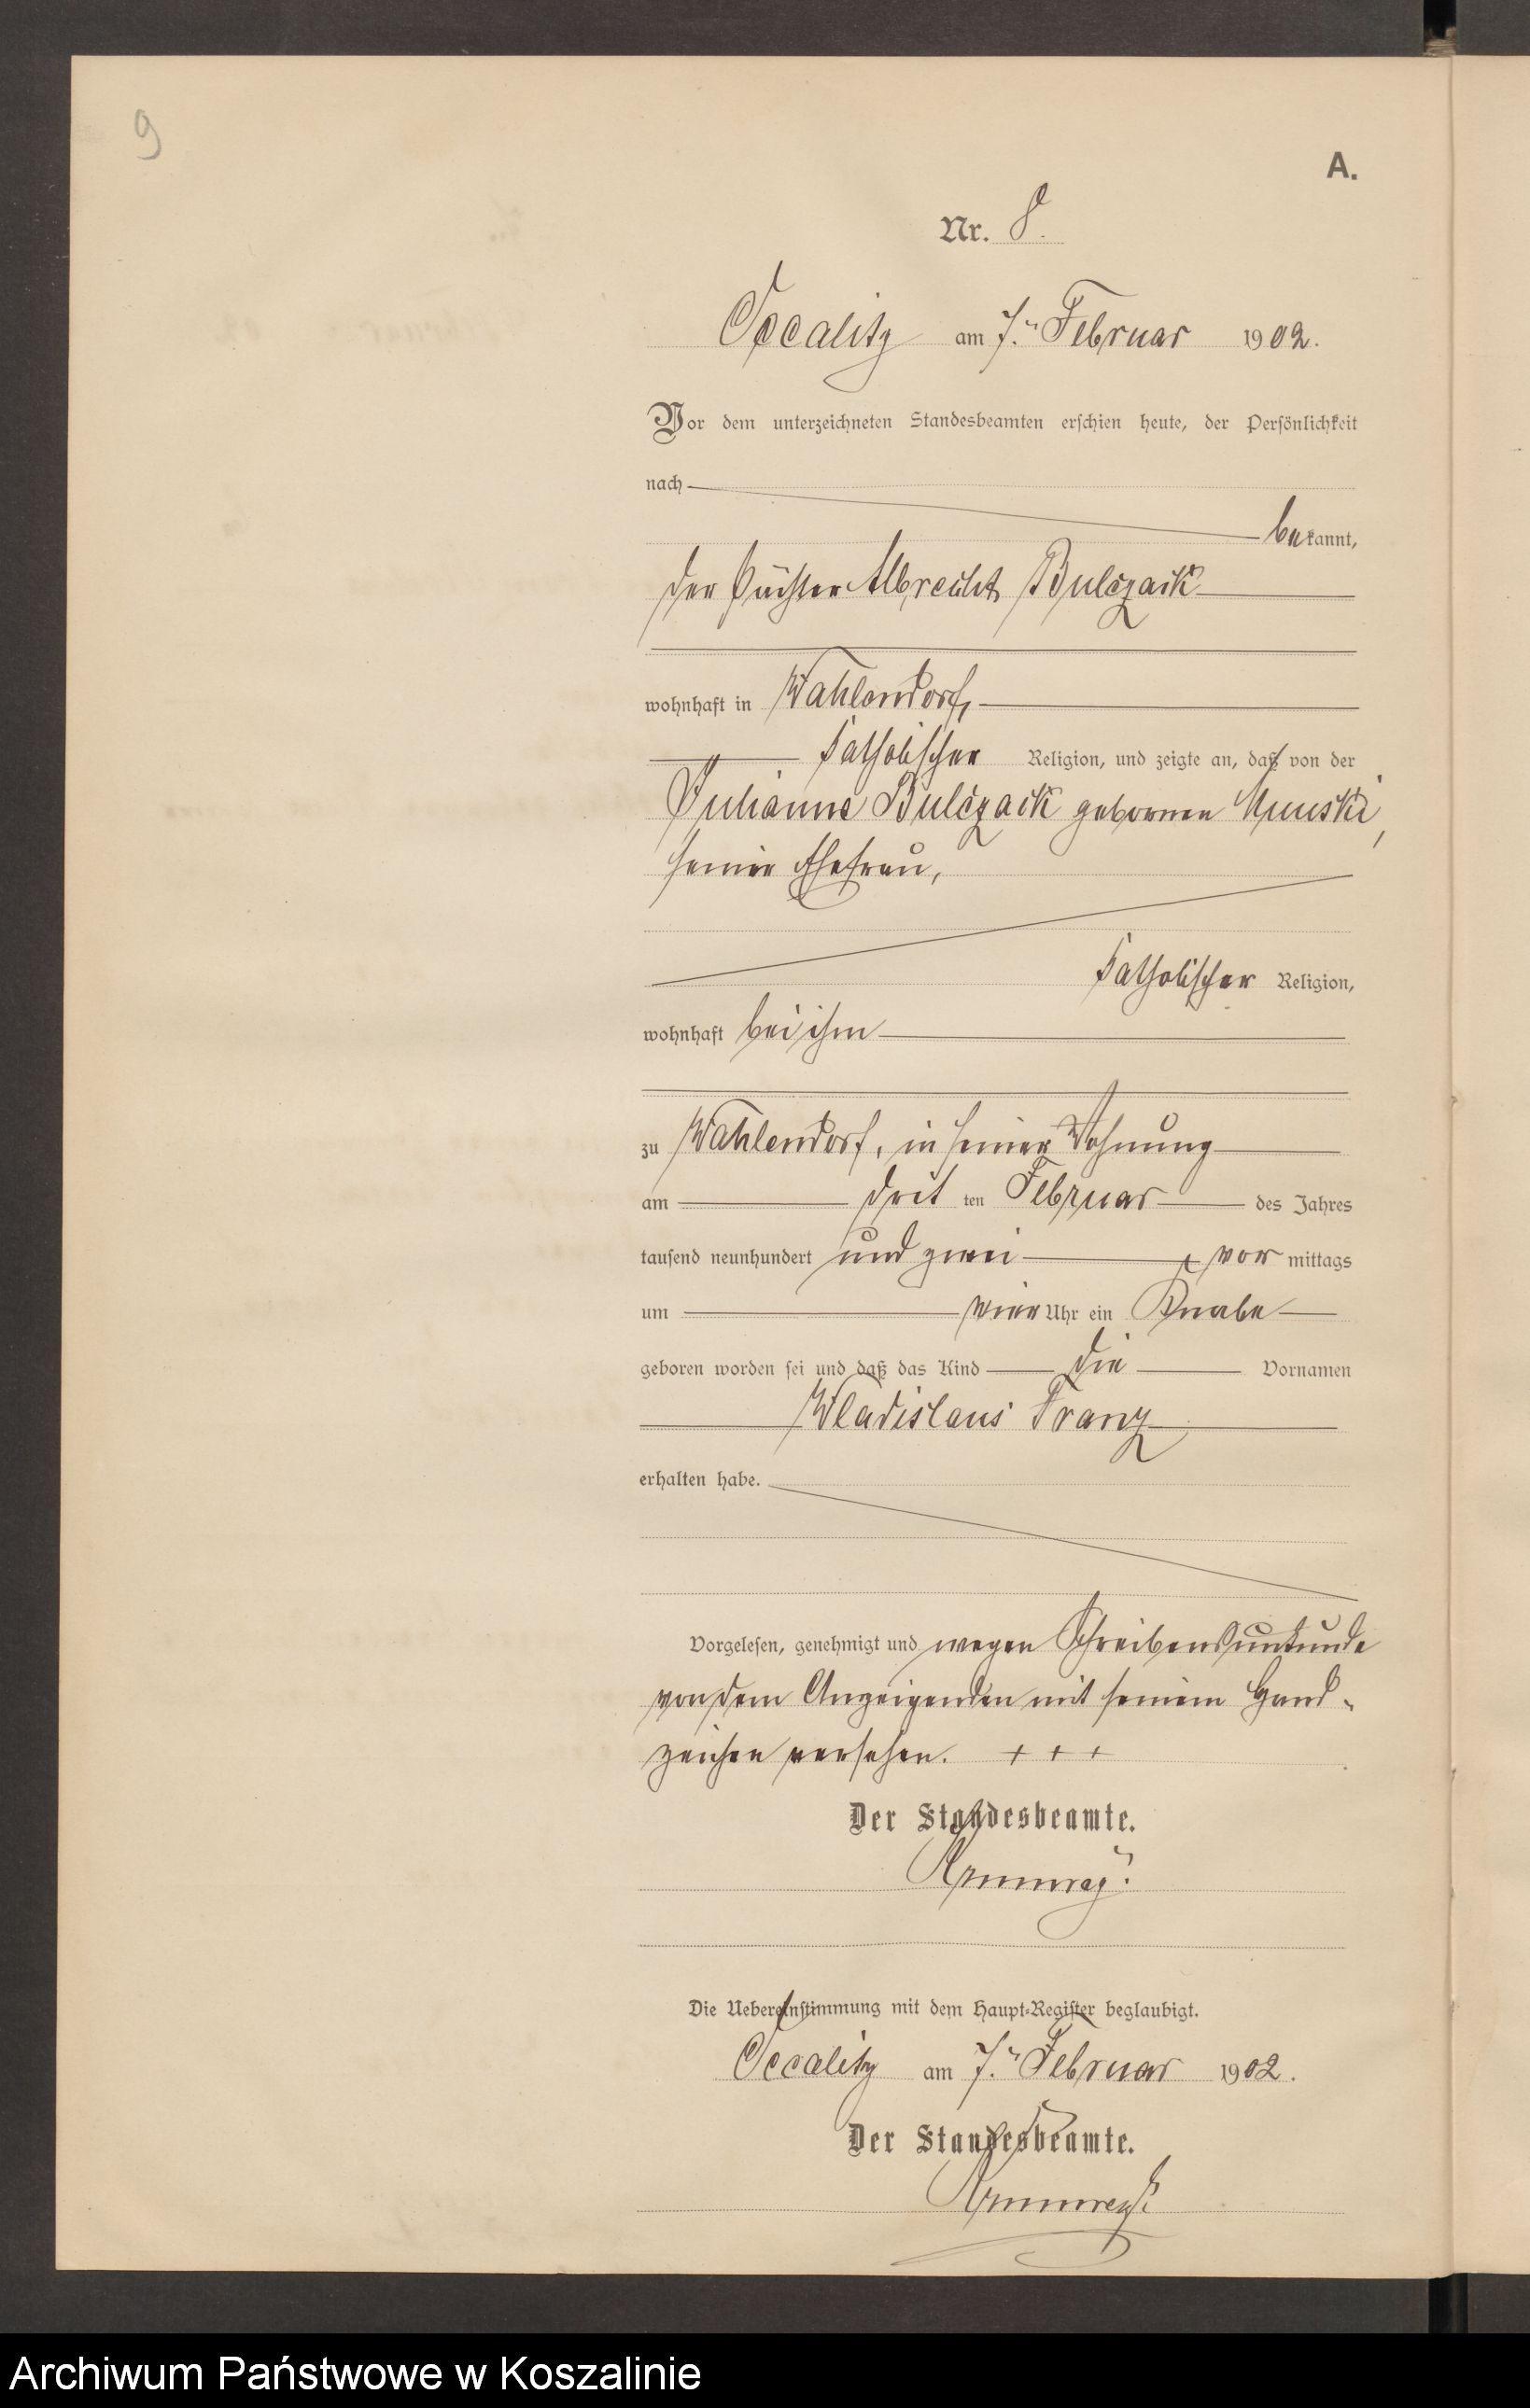 9
A.
Nr. 8.
Occalitz am 7. ten Februar 1902.
Vor dem unterzeichneten Standesbeamten erschien heute, der Persönlichkeit
nach
bekannt,
der Albrecht Bulczack
wohnhaft in Wahlendorf,
katholischer Religion, und zeigte an, daß von der
Julianna Bulczack gebornen
seiner Ehefrau,
katholischer Religion,
wohnhaft bei ihm
zu Wahlendorf, in seiner Wohnung
am dritten Februar des Jahres
tausend neunhundert und zwei, vormittags
um vier Uhr ein Knabe
geboren worden sei und daß das Kind die Vornamen
Wladislaus Franz
erhalten habe.
Vorgelesen, genehmigt und wegen Schreibensunkunde
von dem Anzeigenden mit seinem Hand-
zeichen versehen. + + +
Der Standesbeamte.
Die Uebereinstimmung mit dem Haupt-Register beglaubigt.
Occalitz am 7. ten Februar 1902.
Der Standesbeamte.
Archiwum Państwowe w Koszalinie